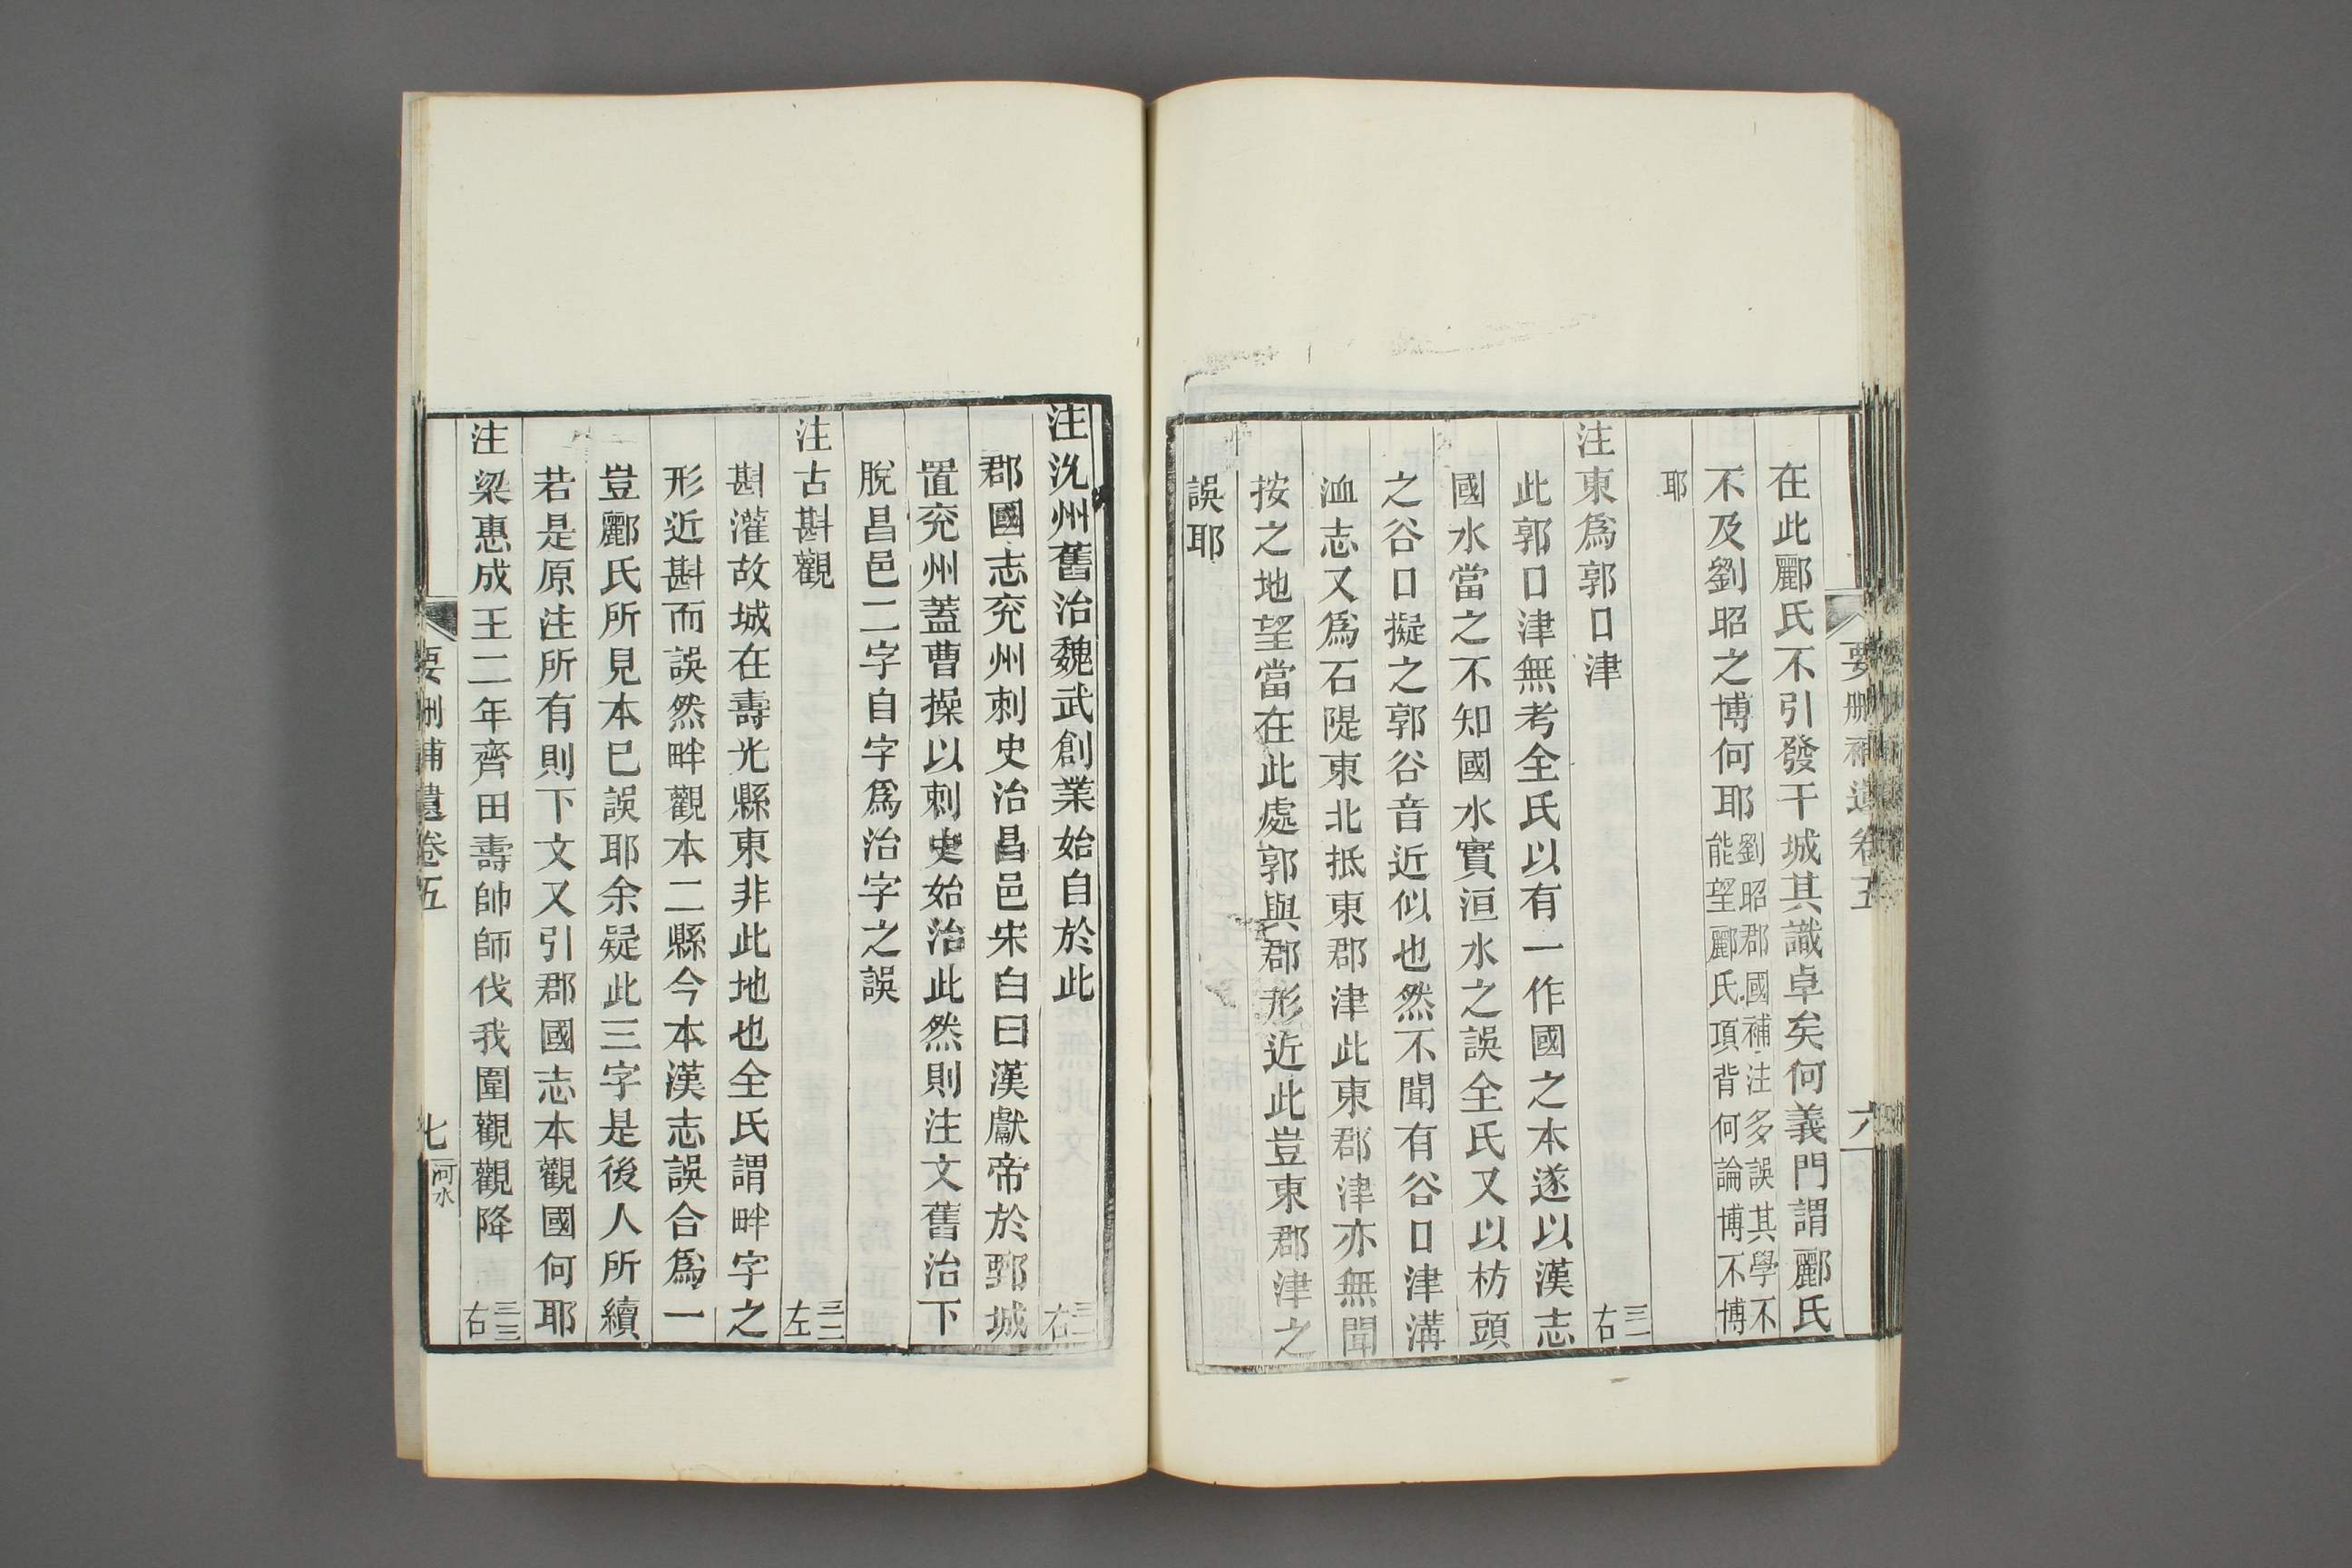 要刪補遺卷五
六
在此酈氏不引發干城其識卓矣何義門謂酈氏
不及劉昭之博何耶劉昭郡國補注多誤其學不能望酈氏項背何論博不博
耶
注東爲郭口津 三一右
此郭口津無考全氏以有一作國之本遂以漢志
國水當之不知國水實洹水之誤全氏又以枋頭
之谷口擬之郭谷音近似也然不聞有谷口津溝
洫志又爲石隄東北抵東郡津此東郡津亦無聞
按之地望當在此處郭與郡形近此豈東郡津之
誤耶
注沇州舊治魏武創業始自於此 三二右
郡國志兖州刺史治昌邑宋白曰漢獻帝於鄄城
置兖州蓋曹操以刺史始治此然則注文舊治下
脫昌邑二字自字爲治字之誤
注古斟觀 三二左
斟灌故城在壽光縣東非此地也全氏謂畔字之
形近斟而誤然畔觀本二縣今本漢志誤合爲一
豈酈氏所見本已誤耶余疑此三字是後人所續
若是原注所有則下文又引郡國志本觀國何耶
注梁惠成王二年齊田壽帥師伐我圍觀觀降 三三右
要刪補遺卷五
七
河水